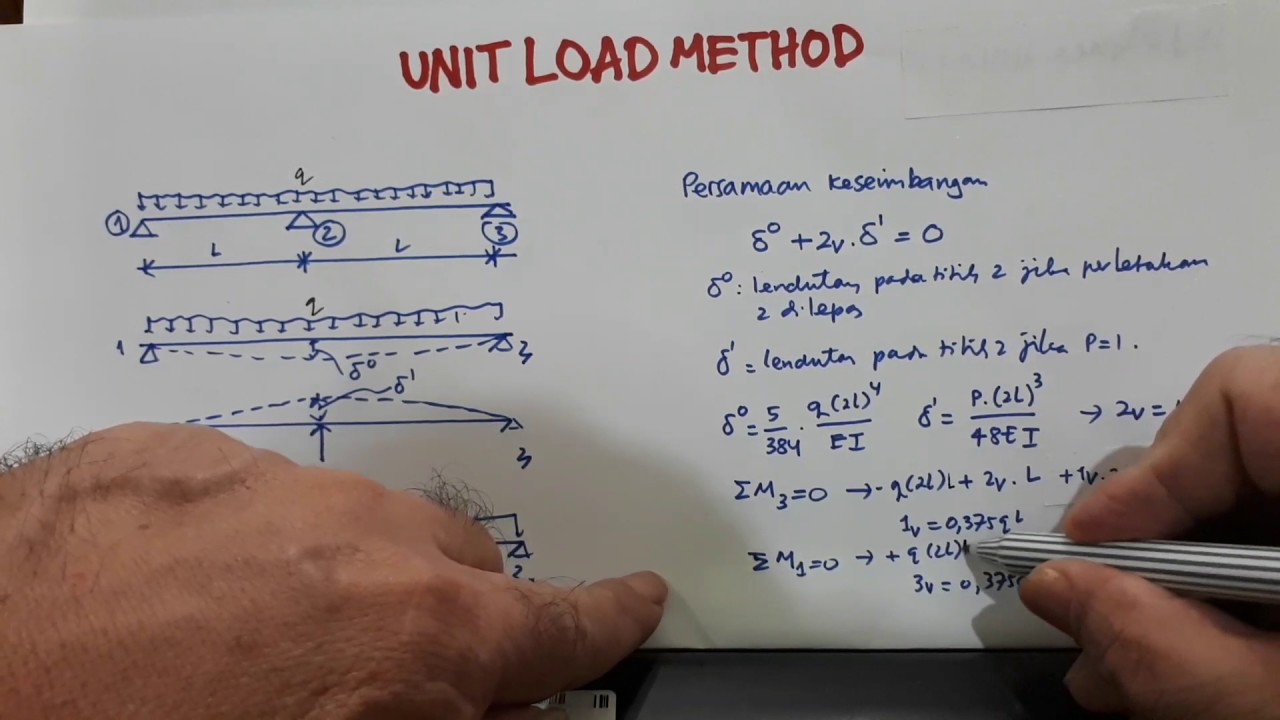 UNIT LOAD METHOD
q
1 2 3
L L
q
1 3
δ⁰
δ'
3
Persamaan keseimbangan
δ⁰ + 2v . δ' = 0
δ⁰ : lendutan pada titik 2 jika perletakan
2 dilepas
δ' = lendutan pada titik 2 jika P = 1 .
δ⁰ = 5/384 . q(2L)⁴/EI δ' = P.(2L)³/48EI → 2v =
ΣM₃=0 → - q(2L)L + 2v . L + 1v .
1v = 0,375 qL
ΣM₁=0 → + q(2L)
3v = 0,375